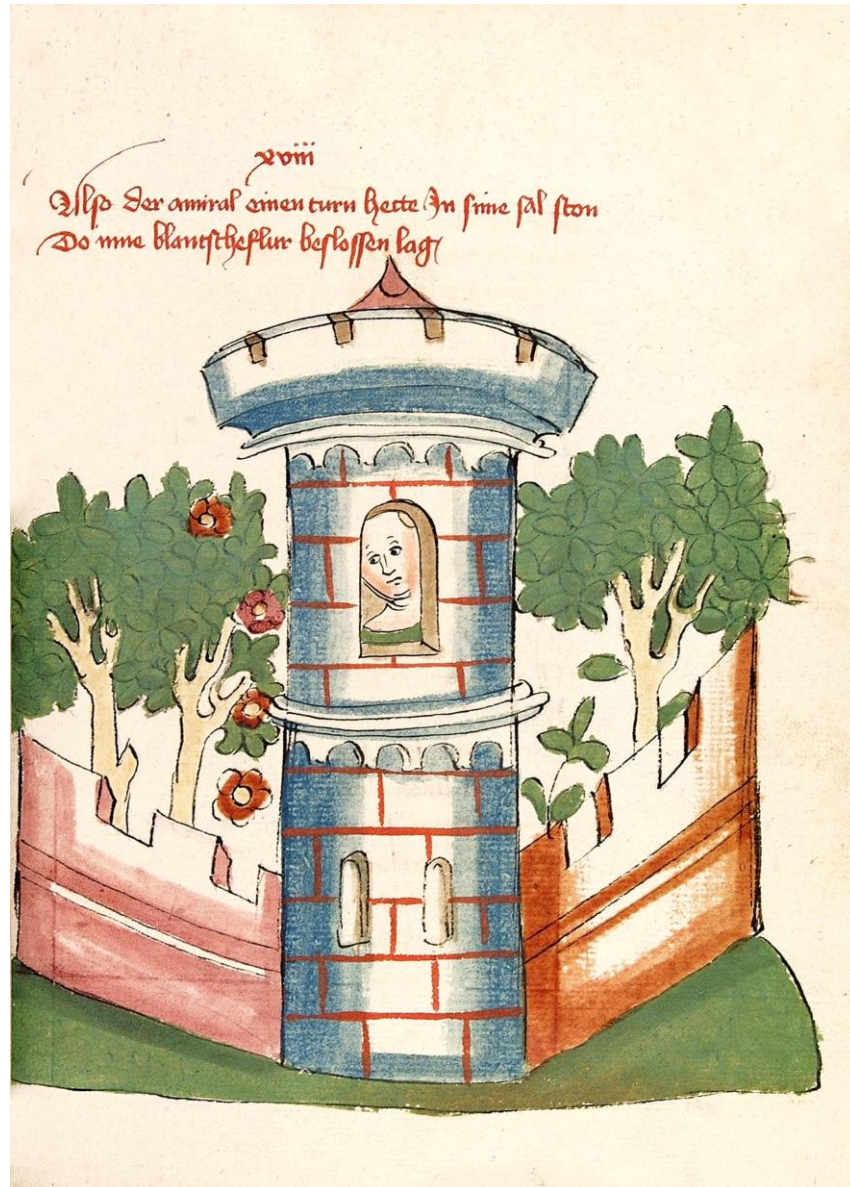 xviii
Also der amiral einen turn hette In sime sal ston
Do inne blantscheflur beslossen lag